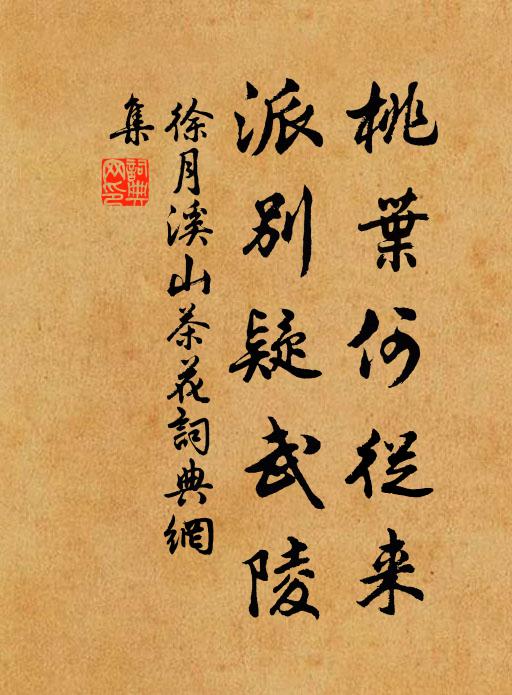 桃葉何從来
派别疑武陵
徐月溪山茶花詞典網
集
詞典網印